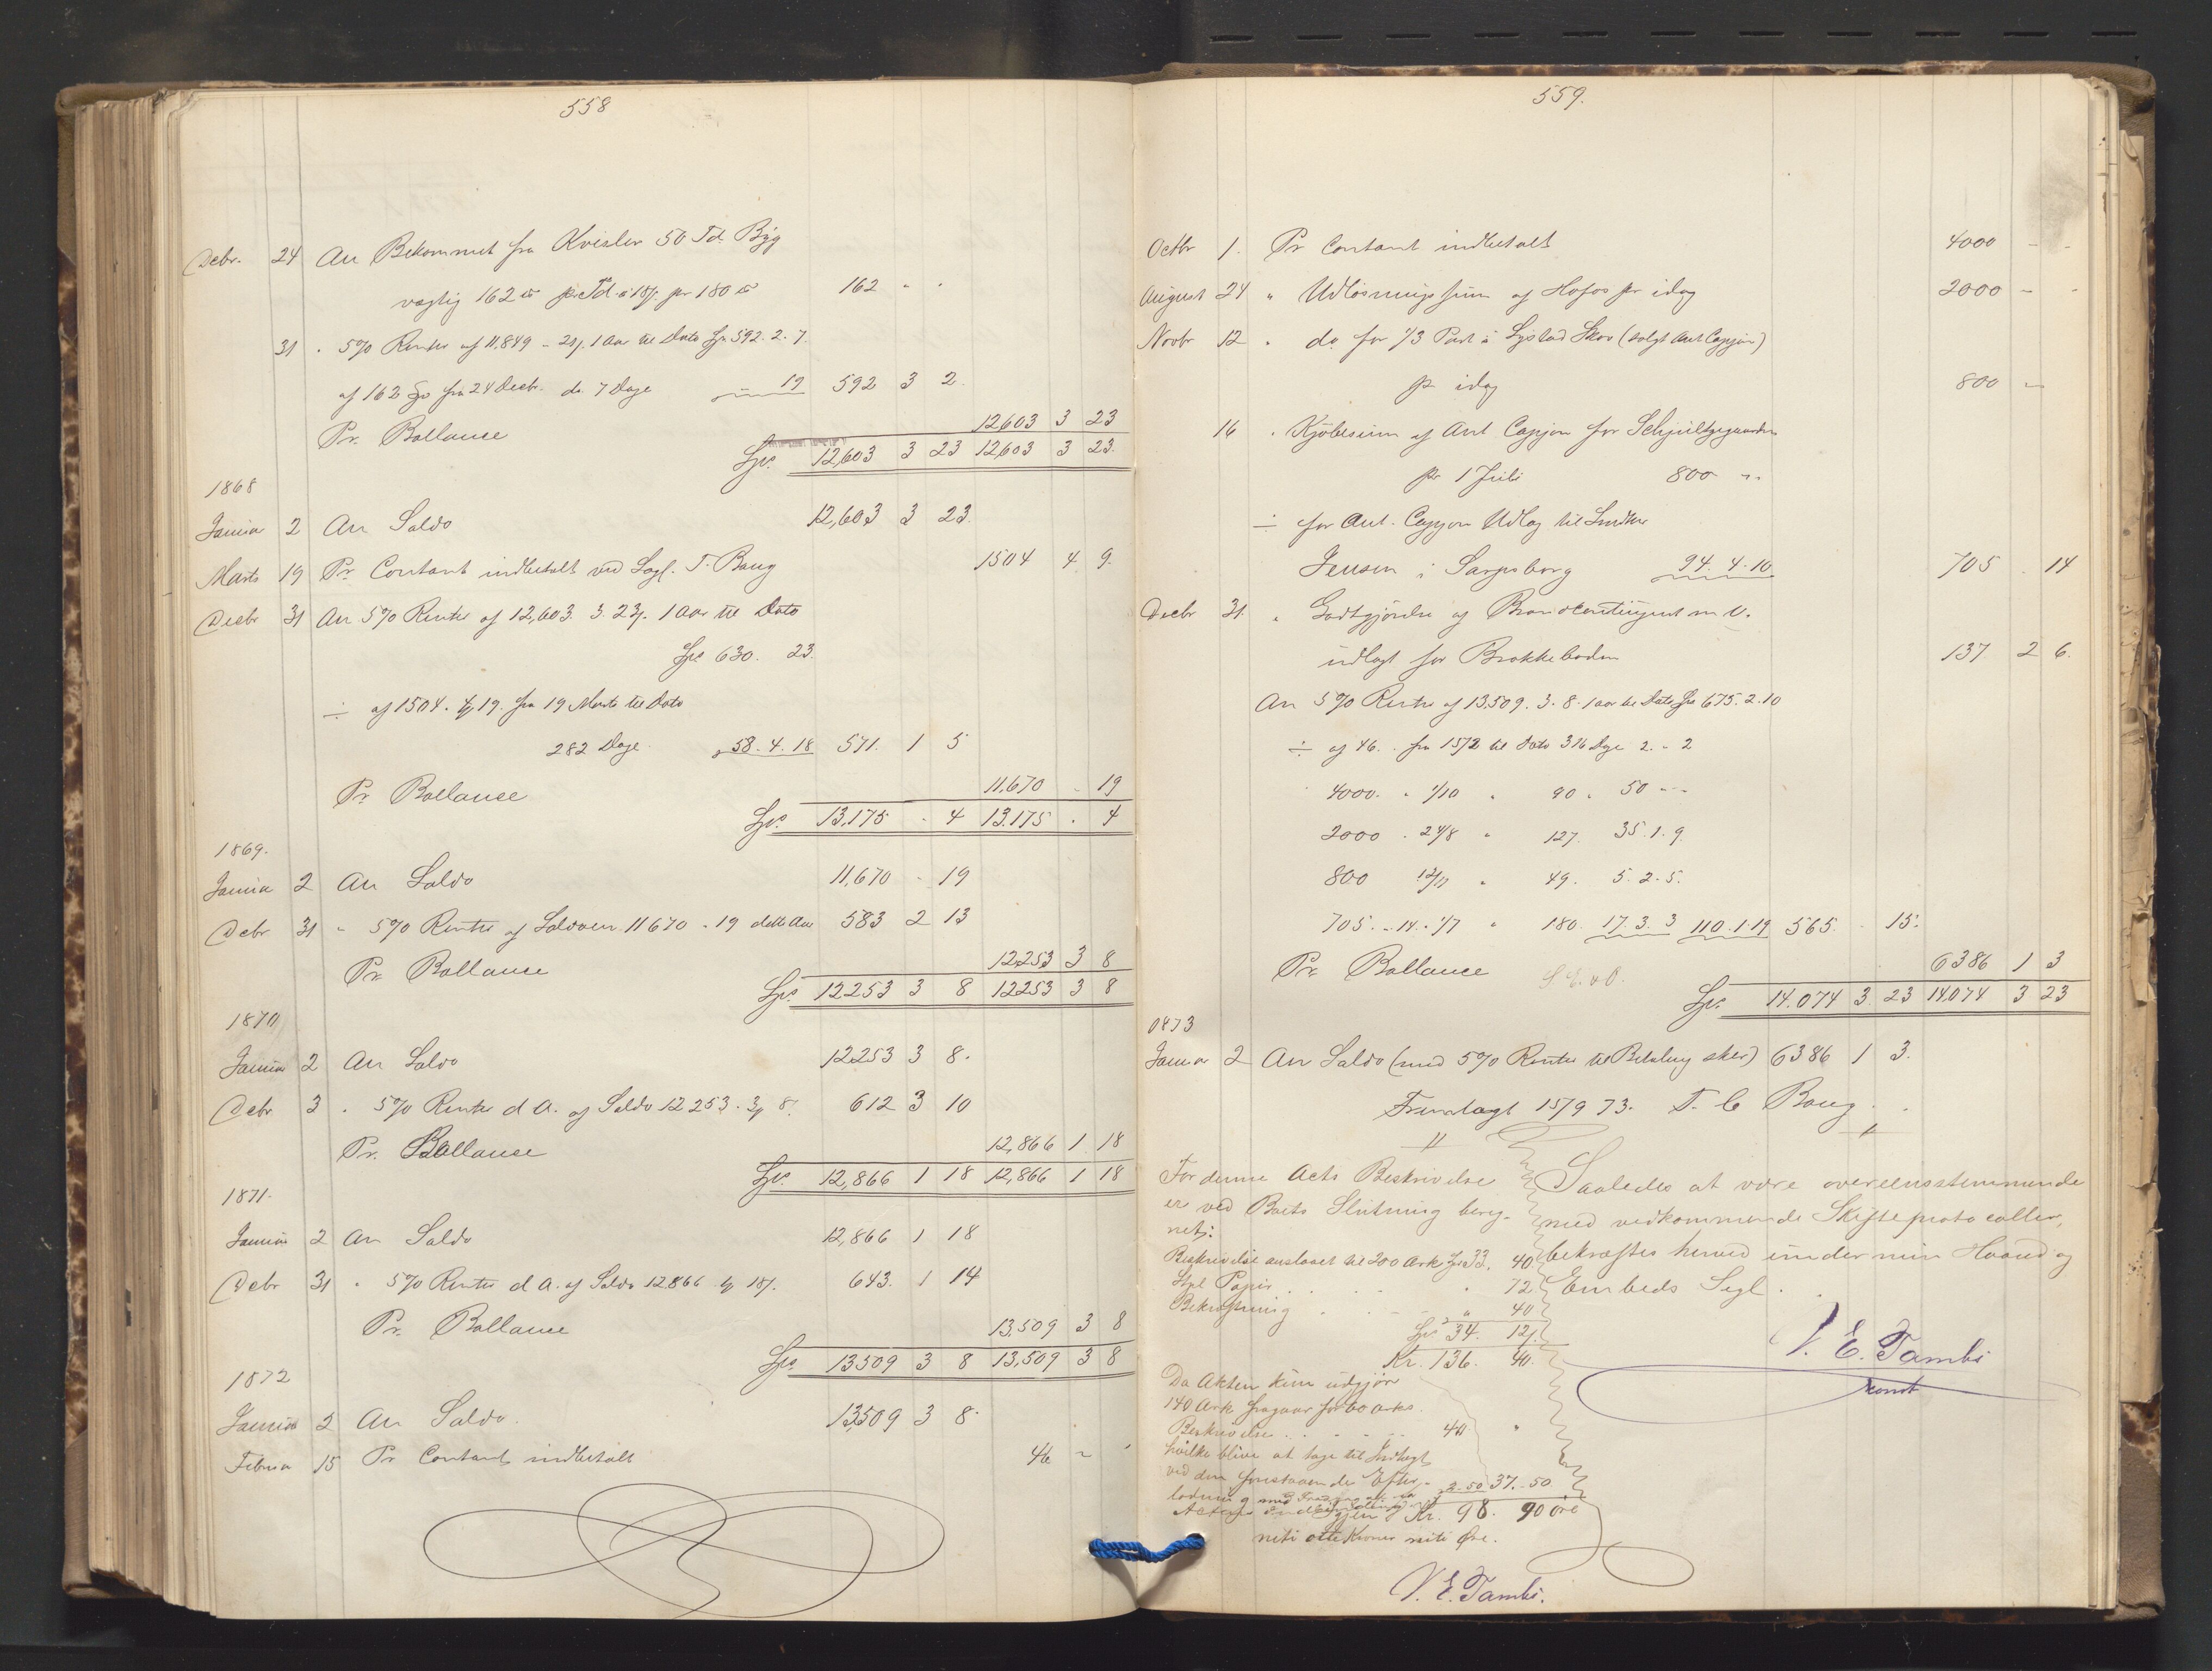 558
Decbr. 24 An Bekommet fra Kvisler 50 Td. Byg
vægtig 162 ℔ pr Td. à 18/. pr 180 ℔ 162 " "
31 " 5% Renter af 11,849 - 21/. 1 Aar til Dato Sp 592. 2. 7.
af 162 Sp fra 24 Decbr. do 7 Dage 19 592 3 2
Pr. Ballance 12603 3 23
Sp. 12,603 3 23 12603 3 23.
1868
Januar 2 An Saldo 12,603 3 23.
Marts 19 Pr Contant indbetalt ved Sagf. T. Baug 1504 4 9.
Decbr 31 An 5% Renter af 12,603. 3. 23/. 1 Aar til Dato
Sp 630. 23.
÷ af 1504. 4/19. fra 19 Marts til Dato
282 Dage " 58. 4. 18 571. 1 5
Pr. Ballance 11,670 - 19
Sp. 13,175 - 4 13.175 . 4
1869.
Januar 2 An Saldo 11,670 - 19
Debr 31 " 5% Renter af Saldoen 11670 - 19 dette Aar 583 2 13
Pr. Ballance 12253 3 8
Sp. 12253 3 8 12253 3 8
1870
Januar 2 An Saldo 12253 3 8.
Debr 3 " 5% Renter d A. af Saldo 12253. 3/ 8/. 612 3 10
Pr. Ballance 12,866 1 18
Sp. 12,866 1 18 12,866 1 18
1871.
Januar 2 An Saldo 12,866 1 18
Debr 31 " 5% Renter d A. af Saldo 12866 1/ 18/. 643. 1 14
Pr. Ballance 13,509 3 8
Sp. 13509 3 8 13,509 3 8
1872
Januar 2 An Saldo. 13,509 3 8.
Februar 15 Pr Contant indbetalt 46 -
559.
Octbr 1. Pr Contant indbetalt 4000 - -
August 24 " Udløsningssum af Hafos pr idag 2000 - -
Novbr 12 " do for 1/3 Part i Lystad Skov (solgt Ant Cappjon)
pr idag 800 -
16 " Kjøbesum af Ant Cappjon for
pr 1 Juli 800 - -
÷ for Ant. Cappjon Udlæg til
Jensen i Sarpsborg 94. 4. 10 705 . 14
Decbr 31. " Godtgjørelse af Brandcontingent m. v.
udlagt for Brakkeboden 137 2 6.
An 5% Renter af 13.509. 3. 8. 1 aar til Dato Sp 675. 2. 10
÷ af 46. . fra 15/2 til Dato 316 Dage 2. - 2
4000. " 1/10 " 90 " 50 - -
2000 . 24/8 " 127. 35. 1. 9.
800 12/11 " 49. 5. 2. 5.
705. - 14. - 1/7 " 180. 17. 3. 3 110. 1. 19 565. . 15.
Pr. Ballance S. E. & O. 6386 1 3
Sp. 14.074 3. 23 14.074 3 23
1873
Januar 2 An Saldo (med 5% Renter til Betaling sker) 6386 1 3.
Fremlagt 15/9 73. T. C Baug.
For denne Acts Beskrivelse
er ved Boets Slutning bereg-
net:
Beskrivelse anslaaet til 200 Ark Sp 33. 40
Stpl Papir . . . " 72
Bekræftning . . . " 40
Sp. 34. 12/.
Kr. 136. 40.
Da Akten kun udgjør
140 Ark fragaar for 60 Arks
Beskrivelse . . . 40 "
hvilke bliver at tage til Indtægt
ved den forestaaende Efter-
lodning med 2.50 37. 50
Actens Kr. 98. 90 øre
niti otte Kroner niti Øre.
V. E. Tambs.
Saaledes at være overeensstemmende
med vedkommende Skifteprotocoller,
bekræftes herved under min Haand og
Embeds Segl.
V. E. Tambs
konst